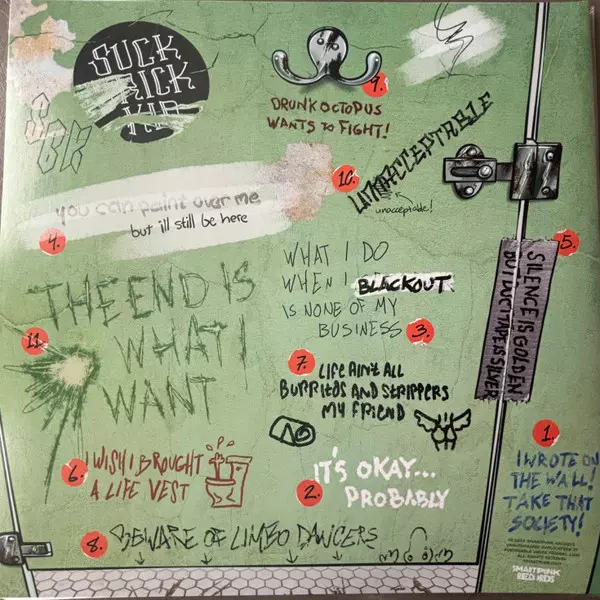 SUCK
RICK
KID
SGK
9.
DRUNK OCTOPUS
WANTS TO FIGHT!
10.
UNACCEPTABLE
unacceptable!
you can paint over me
but ill still be here
4.
THE END IS
WHAT I
WANT
11.
WHAT I DO
WHEN I BLACKOUT
IS NONE OF MY
BUSINESS
3.
5.
SILENCE IS GOLDEN
BUT DUCT TAPE IS SILVER
7.
LIFE AIN'T ALL
BURRITOS AND STRIPPERS
MY FRIEND
NO
6.
I WISH I BROUGHT
A LIFE VEST
2.
IT'S OKAY...
PROBABLY
1.
I WROTE ON
THE WALL!
TAKE THAT
SOCIETY!
8.
BEWARE OF LIMBO DANCERS
SMARTPUNK
RECORDS